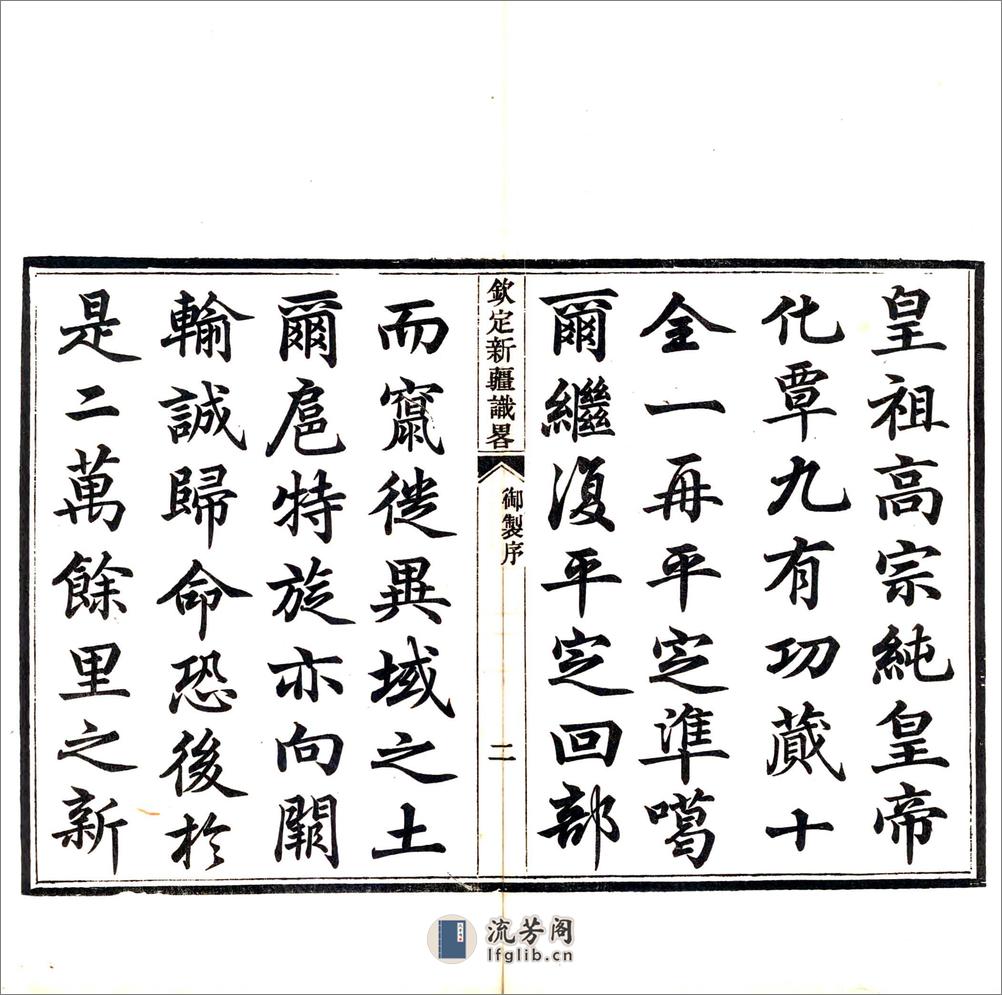 皇祖高宗純皇帝
化覃九有功蕆十
全一再平定準噶
爾繼復平定回部
欽定新疆識畧
御製序
二
而竄徙異域之土
爾扈特旋亦向闕
輸誠歸命恐後於
是二萬餘里之新
流芳阁
lfglib.cn